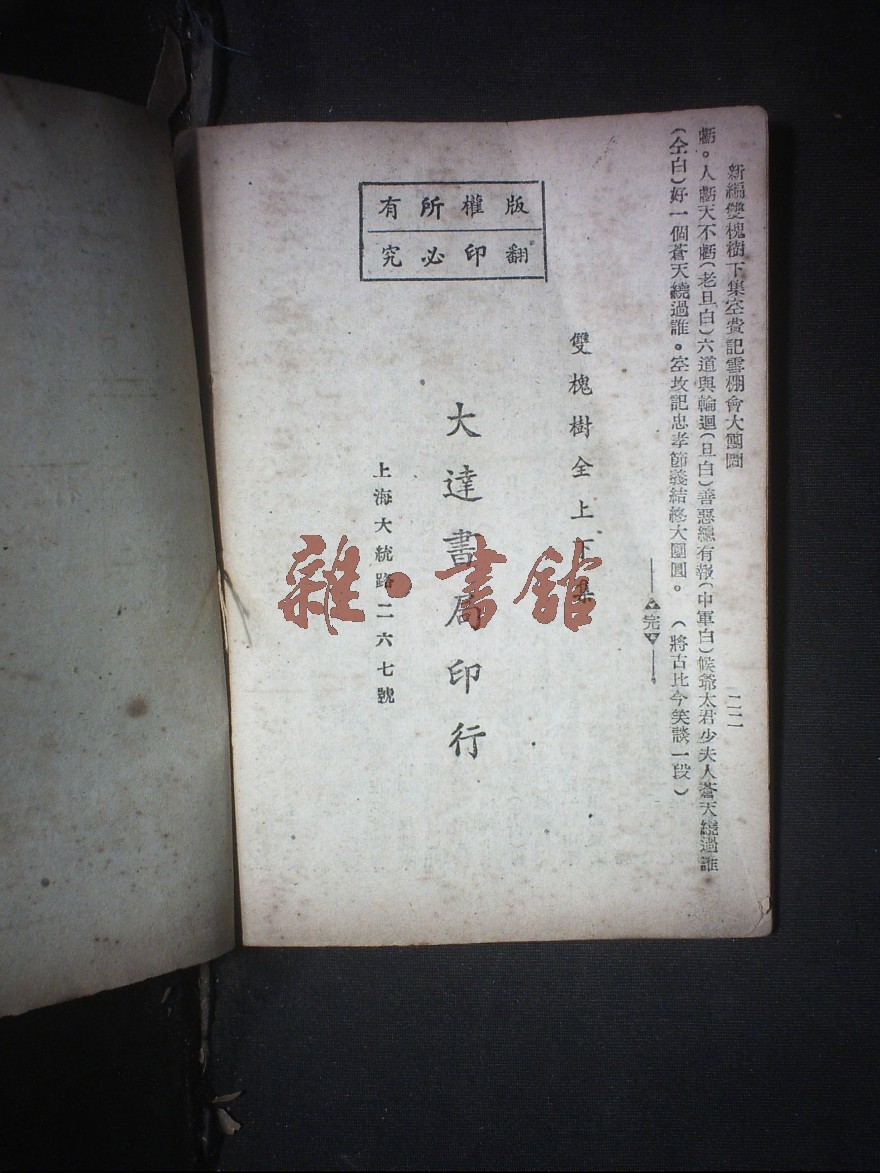 新編雙槐樹下集空費記雲棚會大團圓 二二
虧。人虧天不虧(老旦白)六道與輪迴(旦白)善惡總有報(中軍白)候爺太君少夫人蒼天繞過誰
(仝白)好一個蒼天繞過誰。忠孝節義結終大團圓。 (將古比今笑談一段)
完
雙槐樹全上下集
版權所有
翻印必究
大達書局印行
上海大統路二六七號
雜·書館